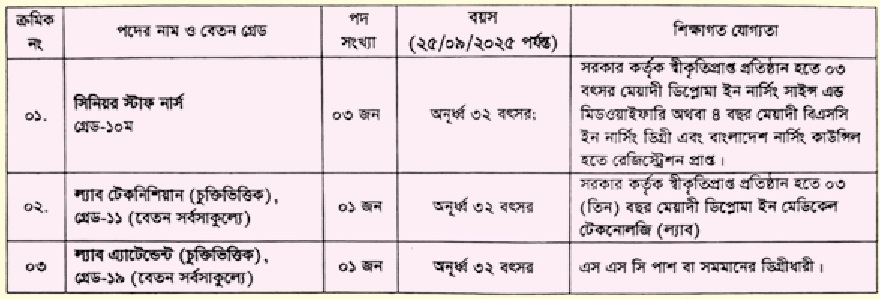 ক্রমিক নং
পদের নাম ও বেতন গ্রেড
পদ সংখ্যা
বয়স
(২৫/০৯/২০২৫ পর্যন্ত)
শিক্ষাগত যোগ্যতা
০১.
সিনিয়র স্টাফ নার্স
গ্রেড-১০ম
০৩ জন
অনূর্ধ্ব ৩২ বৎসর;
সরকার কর্তৃক স্বীকৃতিপ্রাপ্ত প্রতিষ্ঠান হতে ০৩
বৎসর মেয়াদী ডিপ্লোমা ইন নার্সিং সাইন্স এন্ড
মিডওয়াইফারি অথবা ৪ বছর মেয়াদী বিএসসি
ইন নার্সিং ডিগ্রী এবং বাংলাদেশ নার্সিং কাউন্সিল
হতে রেজিস্ট্রেশন প্রাপ্ত।
০২.
ল্যাব টেকনিশিয়ান (চুক্তিভিত্তিক),
গ্রেড-১১ (বেতন সর্বসাকুল্যে)
০১ জন
অনূর্ধ্ব ৩২ বৎসর
সরকার কর্তৃক স্বীকৃতিপ্রাপ্ত প্রতিষ্ঠান হতে ০৩
(তিন) বছর মেয়াদী ডিপ্লোমা ইন মেডিকেল
টেকনোলজি (ল্যাব)
০৩
ল্যাব এ্যাটেন্ডেন্ট (চুক্তিভিত্তিক),
গ্রেড-১৯ (বেতন সর্বসাকুল্যে)
০১ জন
অনূর্ধ্ব ৩২ বৎসর
এস এস সি পাশ বা সমমানের ডিগ্রীধারী।